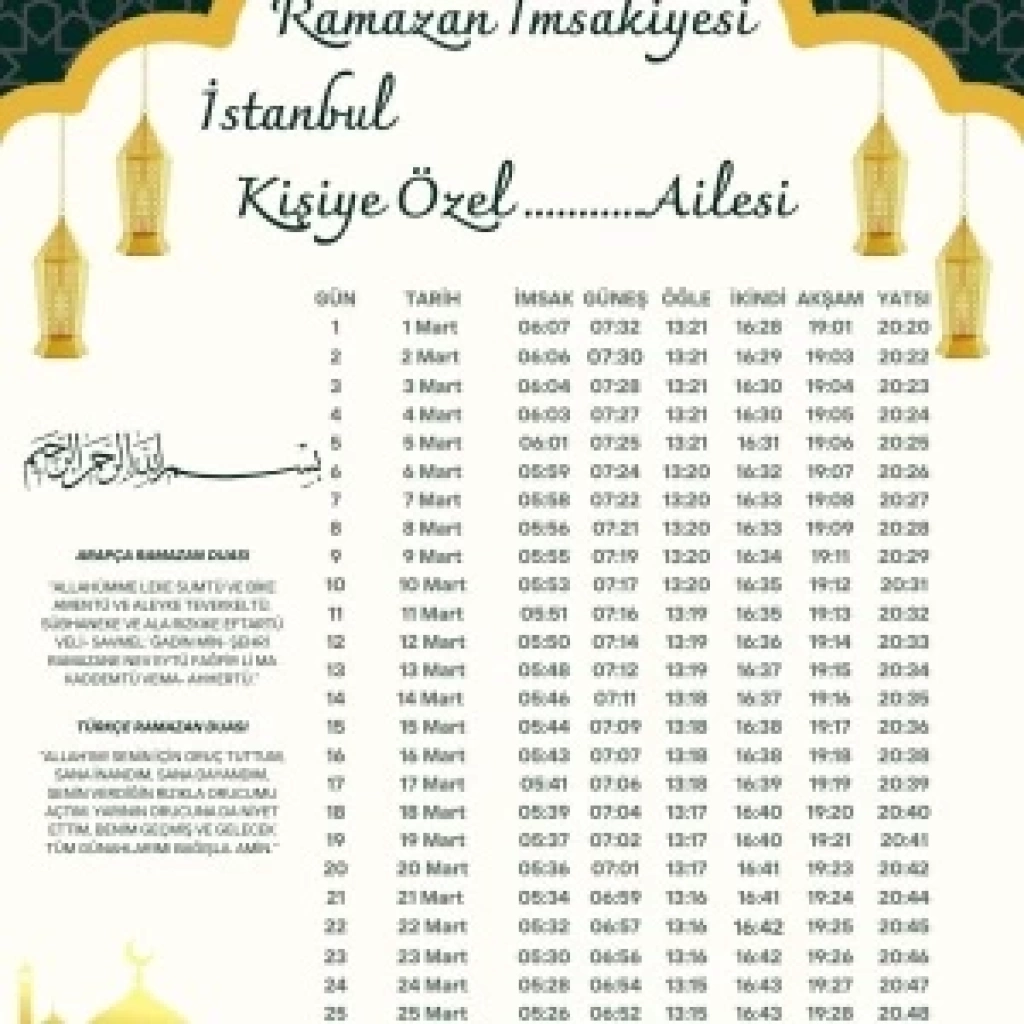 Ramazan İmsakiyesi
İstanbul
Kişiye Özel ...........Ailesi
GÜN TARİH İMSAK GÜNEŞ ÖĞLE İKİNDİ AKŞAM YATSI
1 1 Mart 06:07 07:32 13:21 16:28 19:01 20:20
2 2 Mart 06:06 07:30 13:21 16:29 19:03 20:22
3 3 Mart 06:04 07:28 13:21 16:30 19:04 20:23
4 4 Mart 06:03 07:27 13:21 16:30 19:05 20:24
5 5 Mart 06:01 07:25 13:21 16:31 19:06 20:25
6 6 Mart 05:59 07:24 13:20 16:32 19:07 20:26
7 7 Mart 05:58 07:22 13:20 16:33 19:08 20:27
8 8 Mart 05:56 07:21 13:20 16:33 19:09 20:28
9 9 Mart 05:55 07:19 13:20 16:34 19:11 20:29
10 10 Mart 05:53 07:17 13:20 16:35 19:12 20:31
11 11 Mart 05:51 07:16 13:19 16:35 19:13 20:32
12 12 Mart 05:50 07:14 13:19 16:36 19:14 20:33
13 13 Mart 05:48 07:12 13:19 16:37 19:15 20:34
14 14 Mart 05:46 07:11 13:18 16:37 19:16 20:35
15 15 Mart 05:44 07:09 13:18 16:38 19:17 20:36
16 16 Mart 05:43 07:07 13:18 16:38 19:18 20:38
17 17 Mart 05:41 07:06 13:18 16:39 19:19 20:39
18 18 Mart 05:39 07:04 13:17 16:40 19:20 20:40
19 19 Mart 05:37 07:02 13:17 16:40 19:21 20:41
20 20 Mart 05:36 07:01 13:17 16:41 19:23 20:42
21 21 Mart 05:34 06:59 13:16 16:41 19:24 20:44
22 22 Mart 05:32 06:57 13:16 16:42 19:25 20:45
23 23 Mart 05:30 06:56 13:16 16:42 19:26 20:46
24 24 Mart 05:28 06:54 13:15 16:43 19:27 20:47
25 25 Mart 05:26 06:52 13:15 16:43 19:28 20:48
بسم الله الرحمن الرحيم
ARAPÇA RAMAZAN DUASI
"ALLAHÜMME LEKE SUMTÜ VE BİKE
AMENTÜ VE ALEYKE TEVEKKELTÜ
SÜBHANEKE VE ALA RIZKIKE EFTARTÜ
VELİ- SAVMEL' GADİN MİN- ŞEHRİ
RAMAZANE NEVEYTÜ FAĞFİR Lİ MA
KADDEMTÜ VEMA- AHHERTÜ."
TÜRKÇE RAMAZAN DUASI
"ALLAH'IM! SENİN İÇİN ORUÇ TUTTUM,
SANA İNANDIM, SANA DAYANDIM,
SENİN VERDİĞİN RIZIKLA ORUCUMU
AÇTIM. YARININ ORUCUNA DA NİYET
ETTİM, BENİM GEÇMİŞ VE GELECEK
TÜM GÜNAHLARIMI BAĞIŞLA. AMİN."